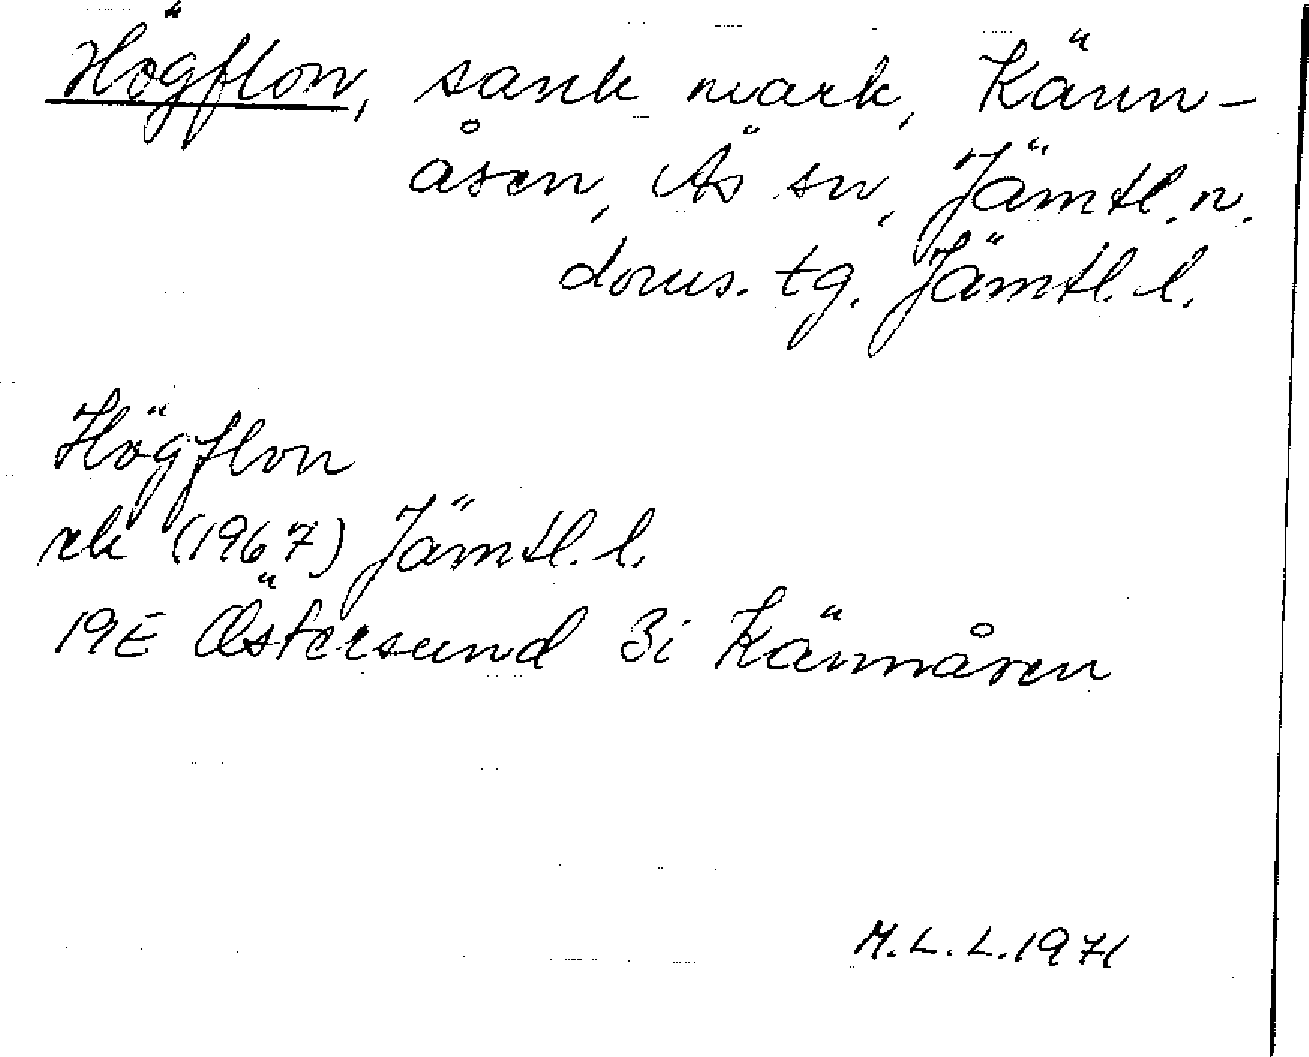 Högflon, sank mark, Känn-
åsen, Ås sn, Jämtl. n.
doms. tg. Jämtl. l.
Högflon
rek (1967) Jämtl. l.
19E Östersund 3i Kännåsen
M.L.L. 1971